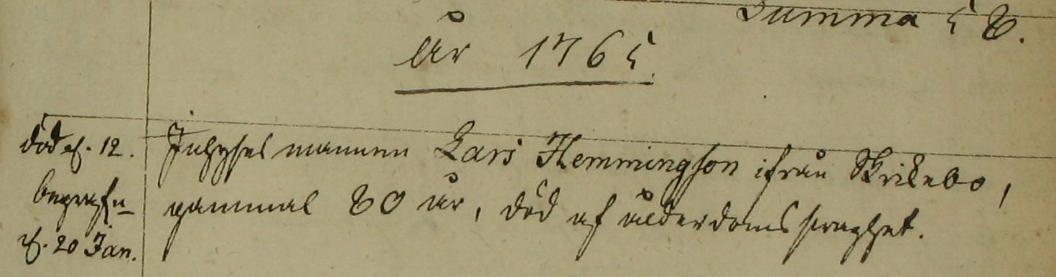 Summa 58.
År 1765.
död d. 12.
begrafn
d. 20 Jan.
Inhyses mannen Lars Hemmingson ifrån Skrikebo,
gammal 80 år, död af ålderdoms swaghet.